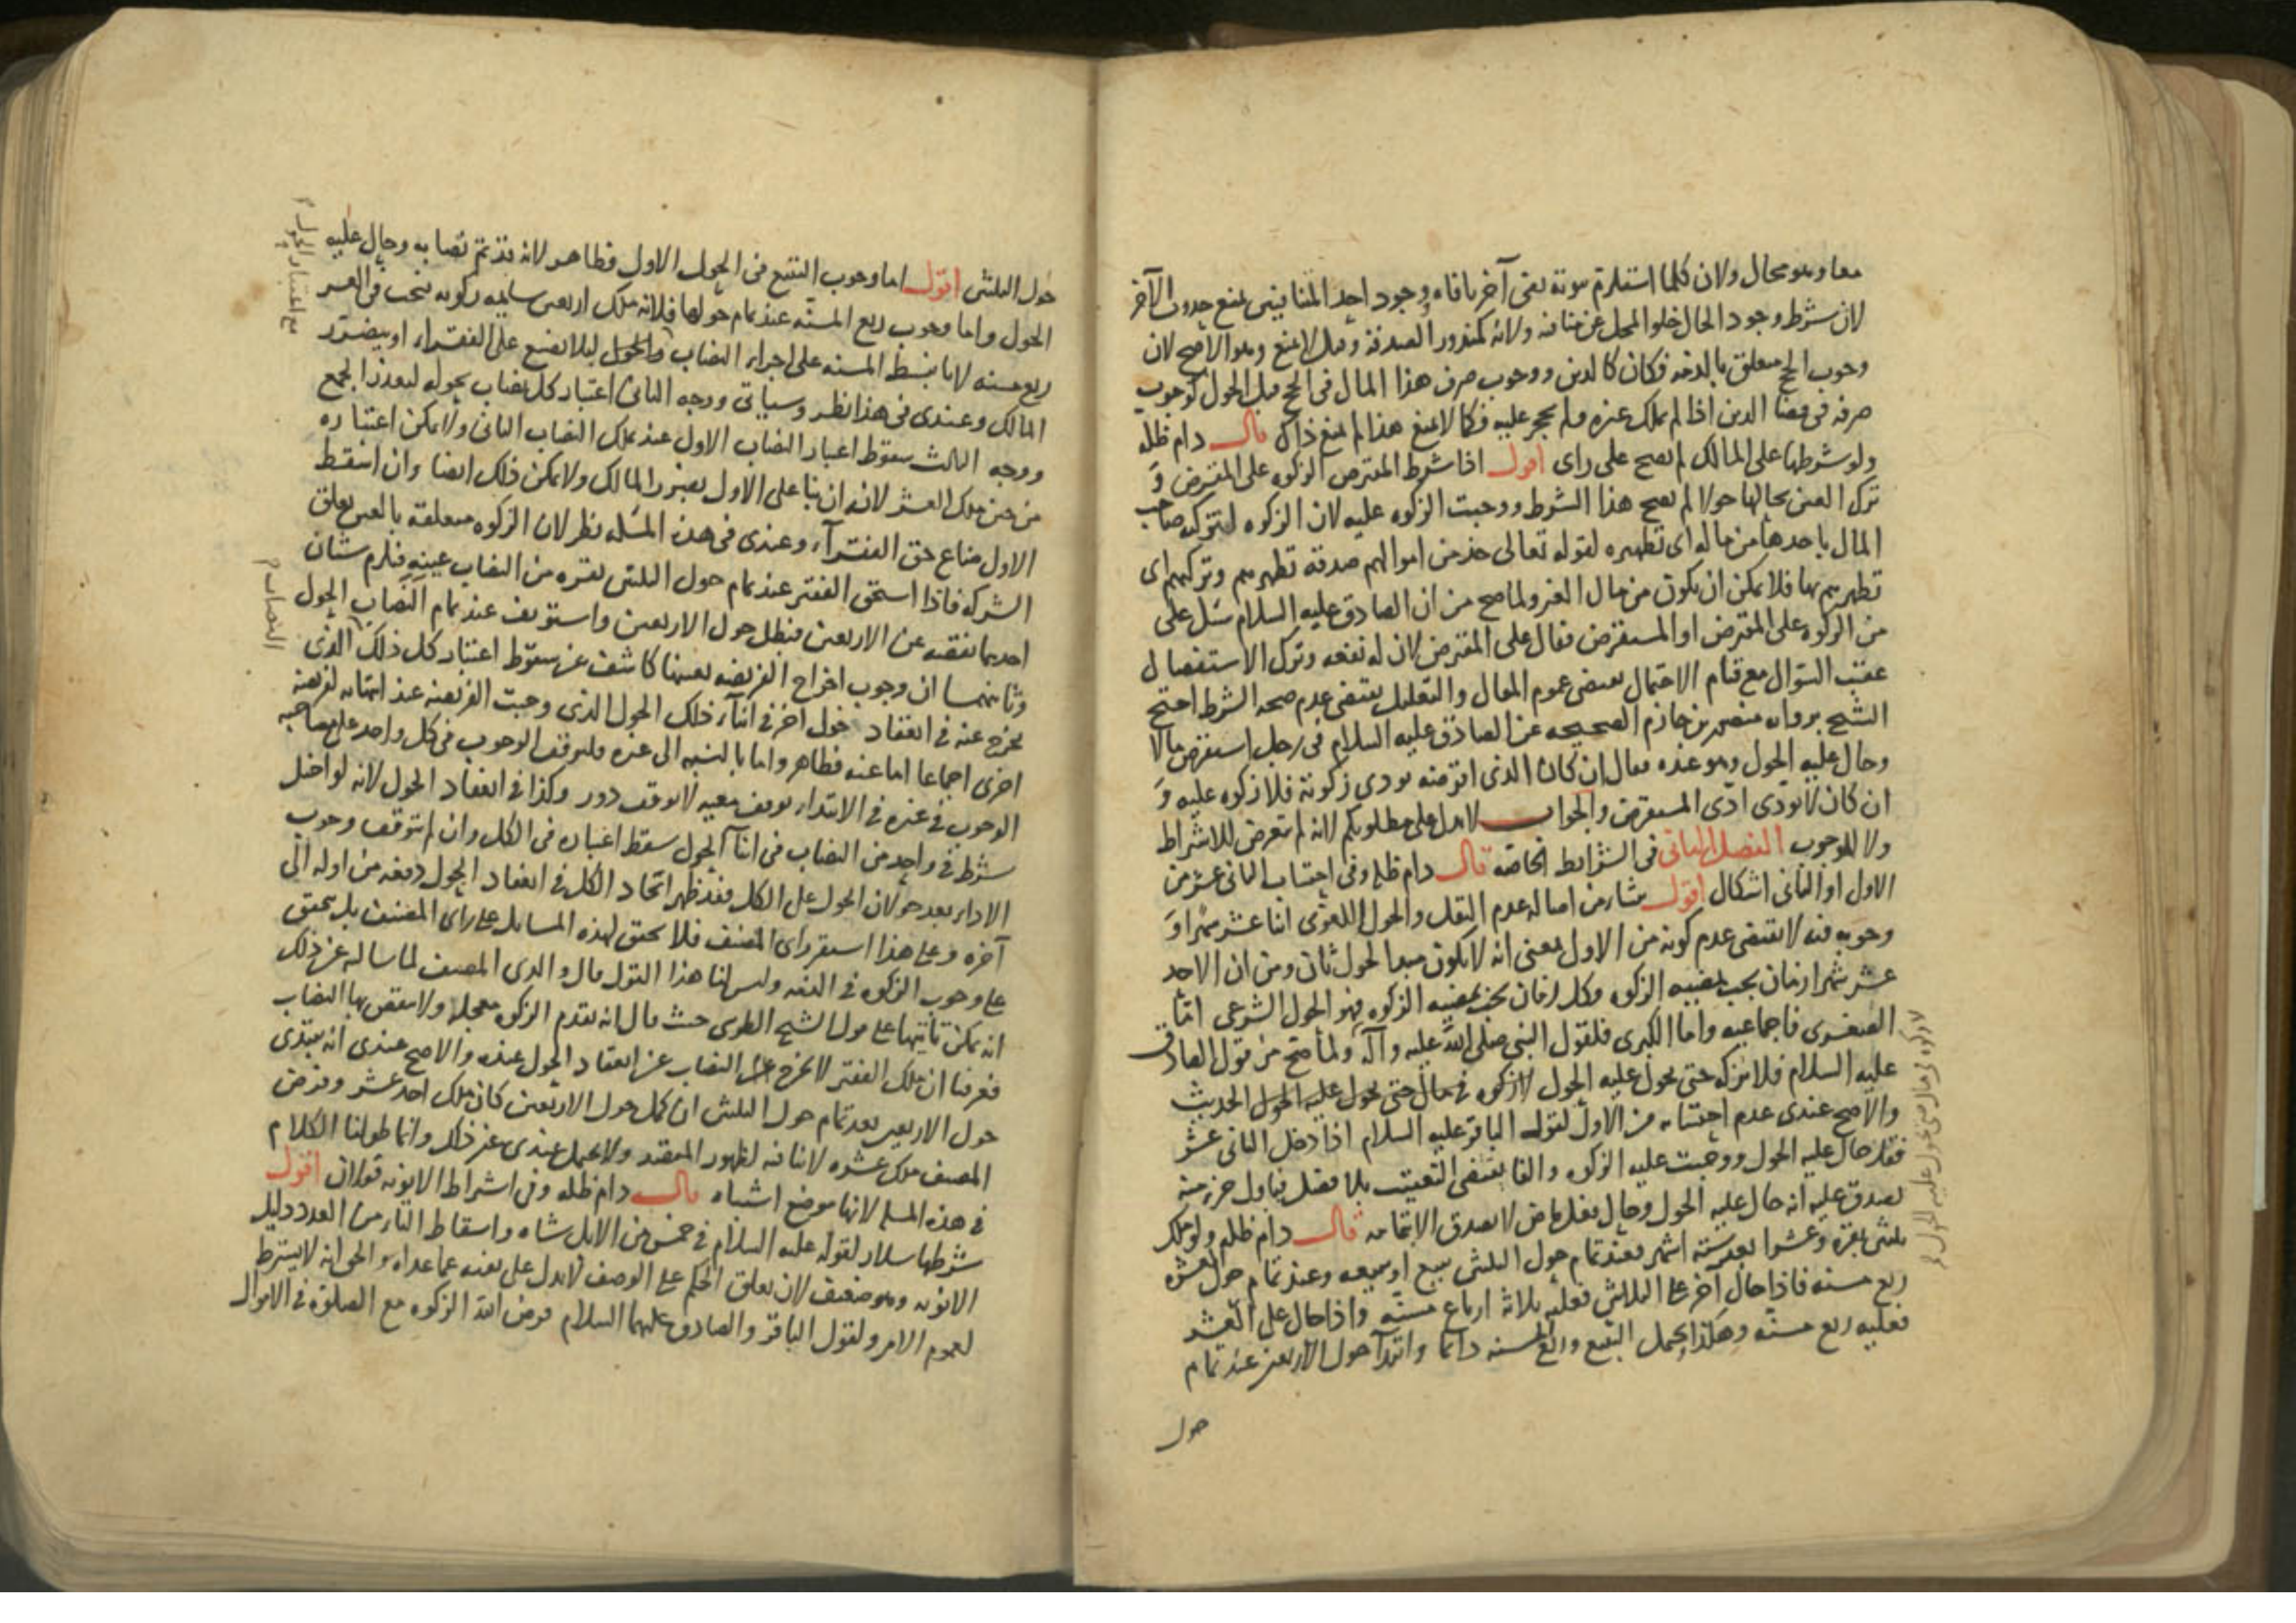 معا وهو محال ولان كلما استلزم ثبوته نفى آخر نافاه ووجود احد المتنافيين يمنع حدوث الآخر
لان شرط وجود الحال خلو المحل عن منافيه ولانه كمنذور الصدقة وقيل لا يمنع وهو الاصح لان
وجوب الحج متعلق بالذمه فكان كالدين ووجوب صرف هذا المال فى الحج قبل الحول كوجوب
صرفه فى قضا الدين اذا لم يملك غيره ولم يحجر عليه فكما لا يمنع هذا لم يمنع ذاك قال دام ظله
ولو شرطها على المالك لم يصح على راى اقول اذا شرط المقترض الزكوه على المقرض و
ترك العين بحالها حولا لم يصح هذا الشرط ووجبت الزكوه عليه لان الزكوه لتزكيه صاحب
المال باحدها من ماله اى تطهيره لقوله تعالى خذ من اموالهم صدقة تطهرهم وتزكيهم اى
تطهرهم بها فلا يمكن ان يكون من مال الغير ولما صح من ان الصادق عليه السلام سئل على
من الزكوه على المقرض او المستقرض فقال على المقترض لان له نفعه وترك الاستفصال
عقيب السؤال مع قيام الاحتمال يقتضى عموم المقال والتعليل يقتضى عدم صحه الشرط احتج
الشيخ برواىه منصور بن حازم الصحيحه عن الصادق عليه السلام فى رجل استقرض مالا
وحال عليه الحول وهو عنده فقال ان كان الذى اقرضه يودى زكوته فلا زكوه عليه و
ان كان لا يودى ادى المستقرض والجواب لا يدل على مطلوبكم لانه لم يتعرض للاشتراط
ولا للوجوب الفصل الثانى فى الشرايط الخاصه قال دام ظله وفى احتساب الثانى عشر من
الاول او الثانى اشكال اقول منشا من اصاله عدم النقل والحول اللغوى اثنا عشر شهرا و
وجوبه فيه لا يقتضى عدم كونه من الاول بمعنى انه لا يكون مبدا لحول ثان ومن ان الاحد
عشر شهرا زمان يجب بمضيه الزكوه وكل زمان يجب بمضيه الزكوه فهو الحول الشرعى اما
الصغرى فاجماعيه واما الكبرى فلقول النبى صلى الله عليه وآله ولما صح من قول الصادق
عليه السلام فلا تزكه حتى يحول عليه الحول لا زكوه فى مال حتى يحول عليه الحول الحديث
والاصح عندى عدم احتسابه من الاول لقول الباقر عليه السلام اذا دخل الثانى عشر
فقد حال عليه الحول ووجبت عليه الزكوه والفا يقتضى التعقيب بلا فصل فباول جزء منه
يصدق عليه انه حال عليه الحول وحال فعل ماض لا يصدق الا بتمامه قال دام ظله ولو ملك
ثلثين بقره وعشرا بعد ستة اشهر فعند تمام حول الثلثين تبيع او تبيعه وعند تمام حول العشره
ربع مسنه فاذا حال آخر على الثلاثين فعليه ثلاثة ارباع مسنه واذا حال على العشر
فعليه ربع مسنه وهكذا يحمل التبيع وربع المسنه دائما وابتدآ حول الاربعين عند تمام
حول
لا زكوه فى مال حتى يحول عليه الحول
حول الثلثين اقول اما وجوب التبيع فى الحول الاول فظاهر لانه قد تم نصابه وحال عليه
الحول واما وجوب ربع المسنه عند تمام حولها فلانه ملك اربعين سايمه زكويه فتجب فى العشر
ربع مسنه لانبساط المسنه على اجزاء النصاب والحول ليلا يضيع على الفقراء او يتضرر
المالك وعندى فى هذا نظر وسياتى ووجه الثانى اعتبار كل نصاب بحوله لتعذر الجمع
ووجه الثالث سقوط اعتبار النصاب الاول عند ملك النصاب الثانى ولا يمكن اعتباره
من حين ملك العشر لانه ان بنا على الاول يضرر المالك ولا يمكن ذلك ايضا وان اسقط
الاول ضاع حق الفقرآء وعندى فى هذه المسئله نظر لان الزكوه متعلقه بالعين تعلق
الشركه فاذا استحق الفقير عند تمام حول الثلثين بقره من النصاب عينه فلزم شان
احدهما نقصه عن الاربعين فبطل حول الاربعين واستونف عند تمام النصاب الحول
وثانيهما ان وجوب اخراج الفريضه بعينها كاشف عن سقوط اعتبار كل ذلك الذى
يخرج عنه فى انعقاد حول آخر فى اثنآء ذلك الحول الذى وجبت الفريضه عند انتهائه لفريضه
اخرى اجماعا اما عنه فظاهر واما بالنسبه الى غيره فلتوقف الوجوب فى كل واحد على صاحبه
الوجوب فى غيره فى الابتداء توقف معيه لا توقف دور وكذا فى انعقاد الحول لانه لو اختل
شرط فى واحد من النصاب فى اثنآ الحول سقط اعتباره فى الكل وان لم يتوقف وجوب
الاداء بعد حولان الحول على الكل فقد ظهر اتحاد الكل فى انعقاد الحول دفعه من اوله الى
آخره وعلى هذا استقر راى المصنف فلا يتحقق لهذه المسايل على راى المصنف بل يتحقق
على وجوب الزكوه فى الذمه وليس لنا هذا القول قال والدى المصنف لما سالته عن ذلك
انه يمكن تاتيها على قول الشيخ الطوسى حيث قال انه تقدم الزكوه معجله ولا ينقص بها النصاب
فعرفنا ان ملك الفقير لا يخرج النصاب عن انعقاد الحول عنده والاصح عندى انه يبتدى
حول الاربعين بعد تمام حول الثلثين ان كمل حول الاربعين كان ملك احد عشر وفرض
المصنف ملك عشره لا ينافيه لظهور المقصد ولا يحمل عندى غير ذلك وانما طولنا الكلام
فى هذه المسئله لانها موضع اشتباه قال دام ظله وفى اشتراط الانوثه قولان اقول
شرطها سلار لقوله عليه السلام فى خمس من الابل شاه واسقاط التاء من العدد دليل
الانوثه وهو ضعيف لان تعلق الحكم على الوصف لا يدل على نفيه عما عداه والحق انه لا يشترط
لعموم الامر ولقول الباقر والصادق عليهما السلام فرض الله الزكوه مع الصلوة فى الاموال
مع اعتبار الحول
النصاب